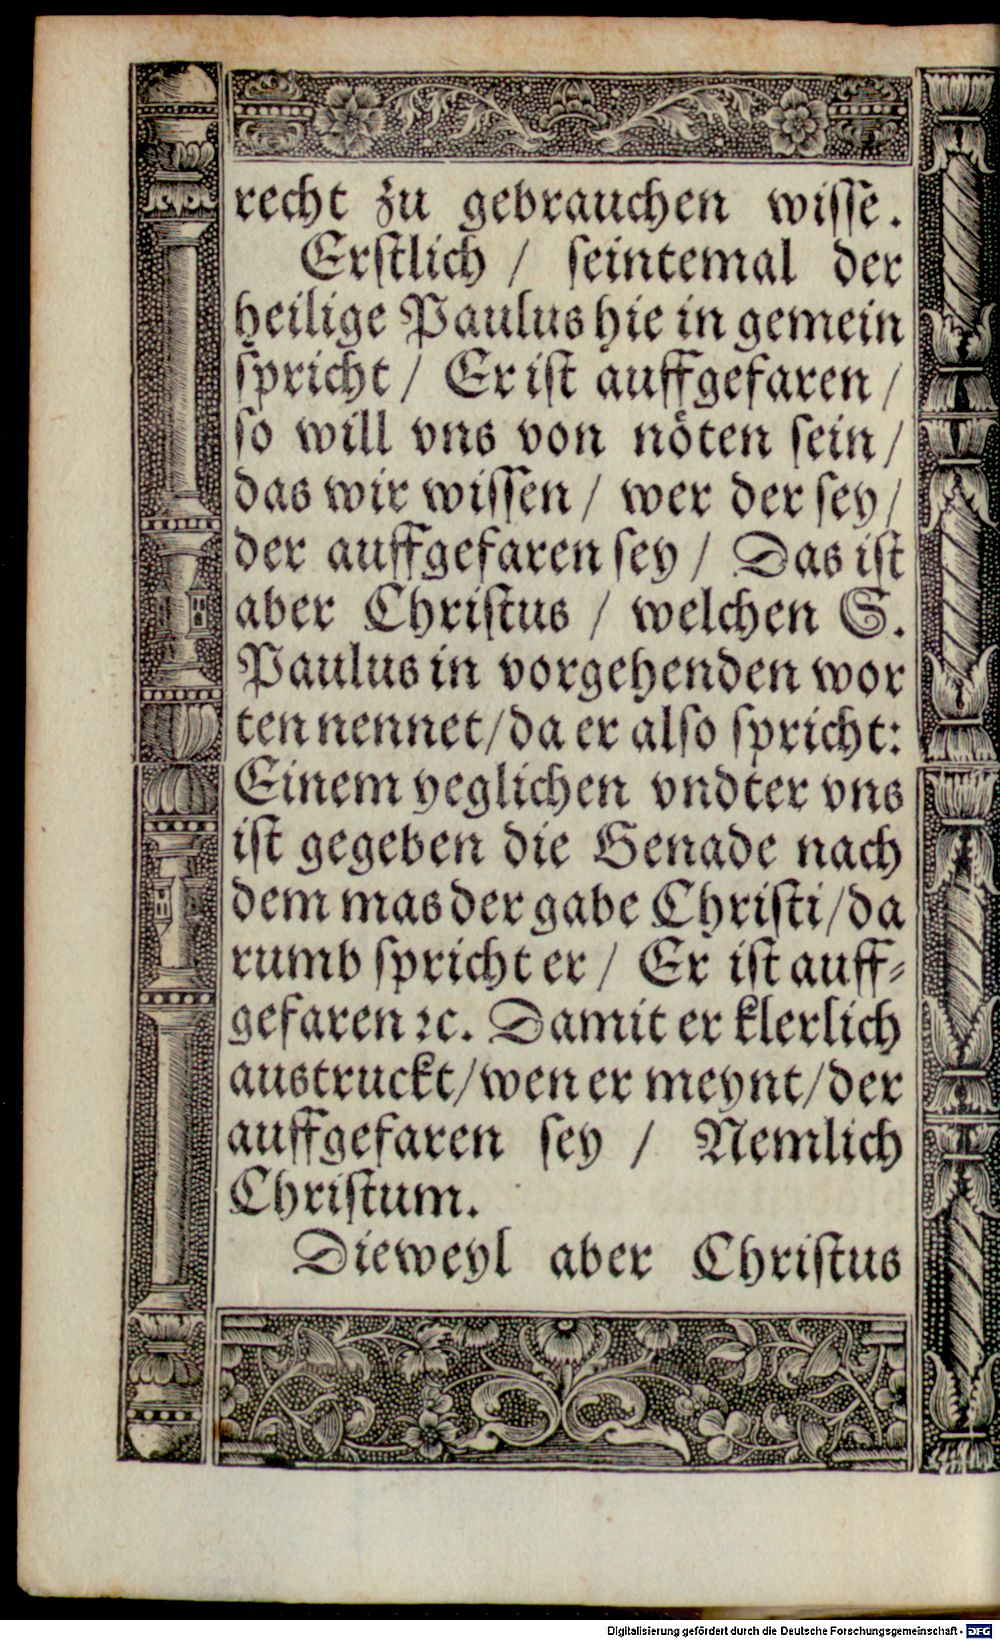 recht zu gebrauchen wisse.
Erstlich / seintemal der
heilige Paulus hie in gemein
spricht / Er ist auffgefaren /
so will vns von nöten sein /
das wir wissen / wer der sey /
der auffgefaren sey / Das ist
aber Christus / welchen S.
Paulus in vorgehenden wor
ten nennet / da er also spricht:
Einem yeglichen vndter vns
ist gegeben die Genade nach
dem mas der gabe Christi / da
rumb spricht er / Er ist auff-
gefaren ꝛc. Damit er klerlich
austruckt / wen er meynt / der
auffgefaren sey / Nemlich
Christum.
Dieweyl aber Christus
Digitalisierung gefördert durch die Deutsche Forschungsgemeinschaft - DFG